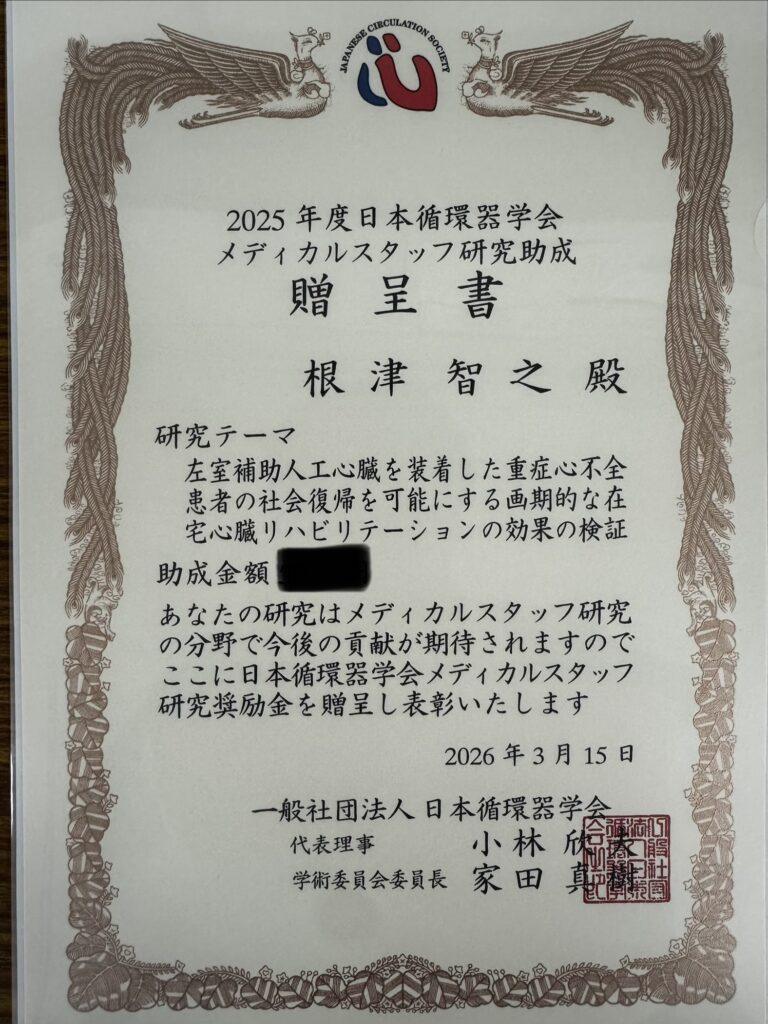 JAPANESE CIRCULATION SOCIETY
2025 年度日本循環器学会
メディカルスタッフ研究助成
贈 呈 書
根 津 智 之 殿
研究テーマ
左室補助人工心臓を装着した重症心不全
患者の社会復帰を可能にする画期的な在
宅心臓リハビリテーションの効果の検証
助成金額
あなたの研究はメディカルスタッフ研究
の分野で今後の貢献が期待されますので
ここに日本循環器学会メディカルスタッフ
研究奨励金を贈呈し表彰いたします
2026 年 3 月 15 日
一般社団法人 日本循環器学会
代表理事 小 林 欣 夫
学術委員会委員長 家 田 真 樹